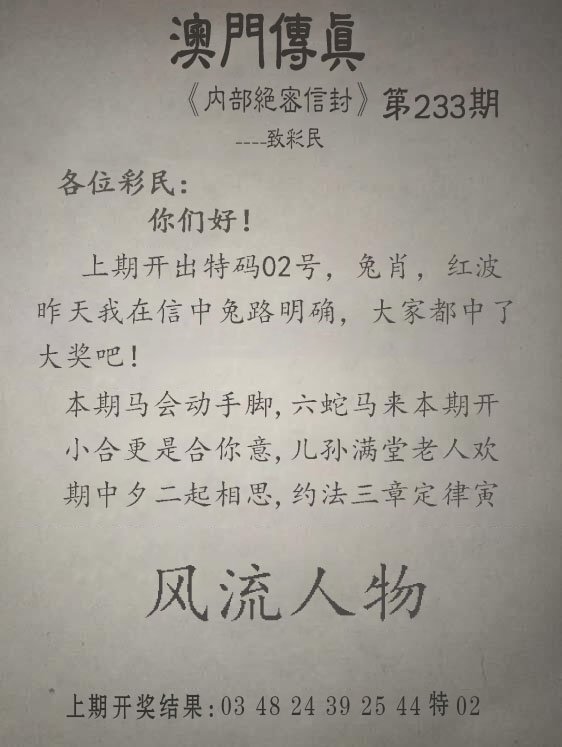 澳門傳眞
《内部絕密信封》第233期
----致彩民
各位彩民：
你们好！
上期开出特码02号，兔肖，红波
昨天我在信中兔路明确，大家都中了
大奖吧！
本期马会动手脚,六蛇马来本期开
小合更是合你意,儿孙满堂老人欢
期中夕二起相思,约法三章定律寅
风流人物
上期开奖结果:03 48 24 39 25 44 特 02